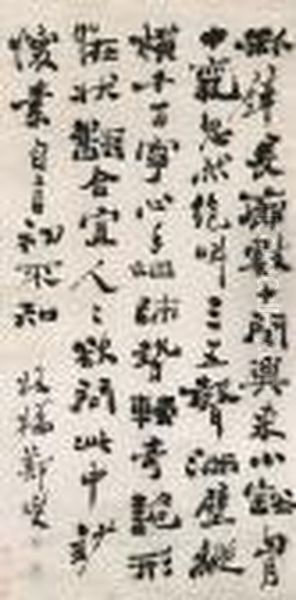 長廊數十間興来小豁胷
中氣忽然絶叫三五聲滿壁縱
橫千万字心手相師勢轉奇詭形
怪狀翻合宜人々欲問此中妙
懷素自言初不知 板橋鄭燮